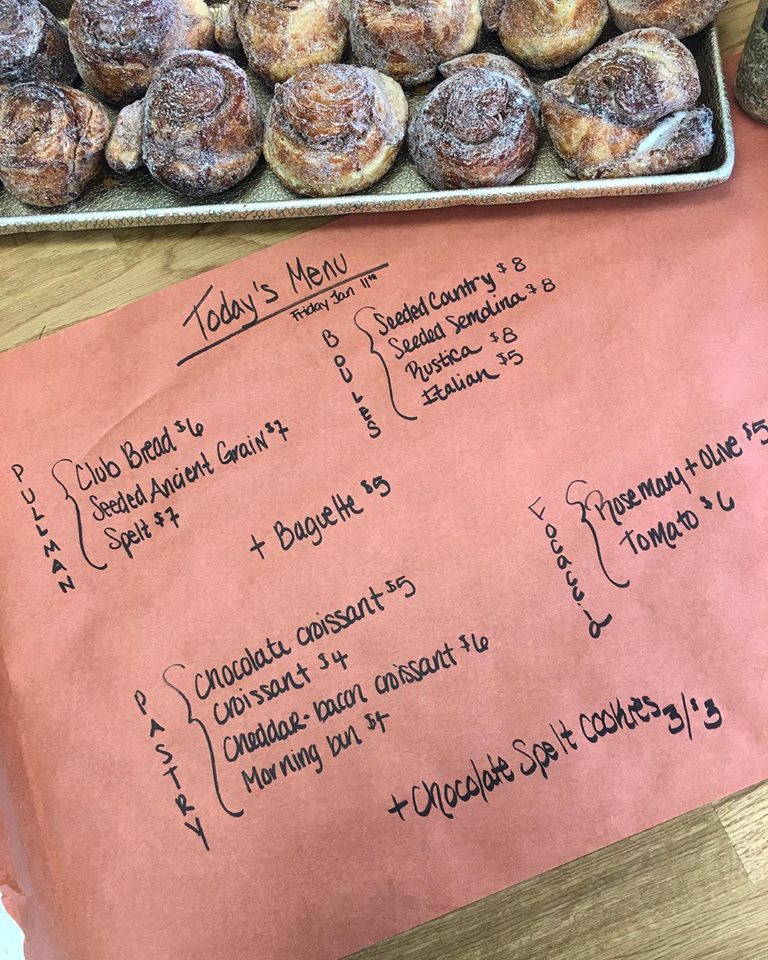 Today's Menu
Friday Jan 11th
BOULES
Seeded Country $8
Seeded Semolina $8
Rustica $8
Italian $5
PULLMAN
Club Bread $6
Seeded Ancient Grain $7
Spelt $7
+ Baguette $5
Focaccia
Rosemary + Olive $5
Tomato $6
PASTRY
Chocolate croissant $5
croissant $4
Cheddar-bacon croissant $6
Morning bun $4
+ Chocolate Spelt cookies 3/$3